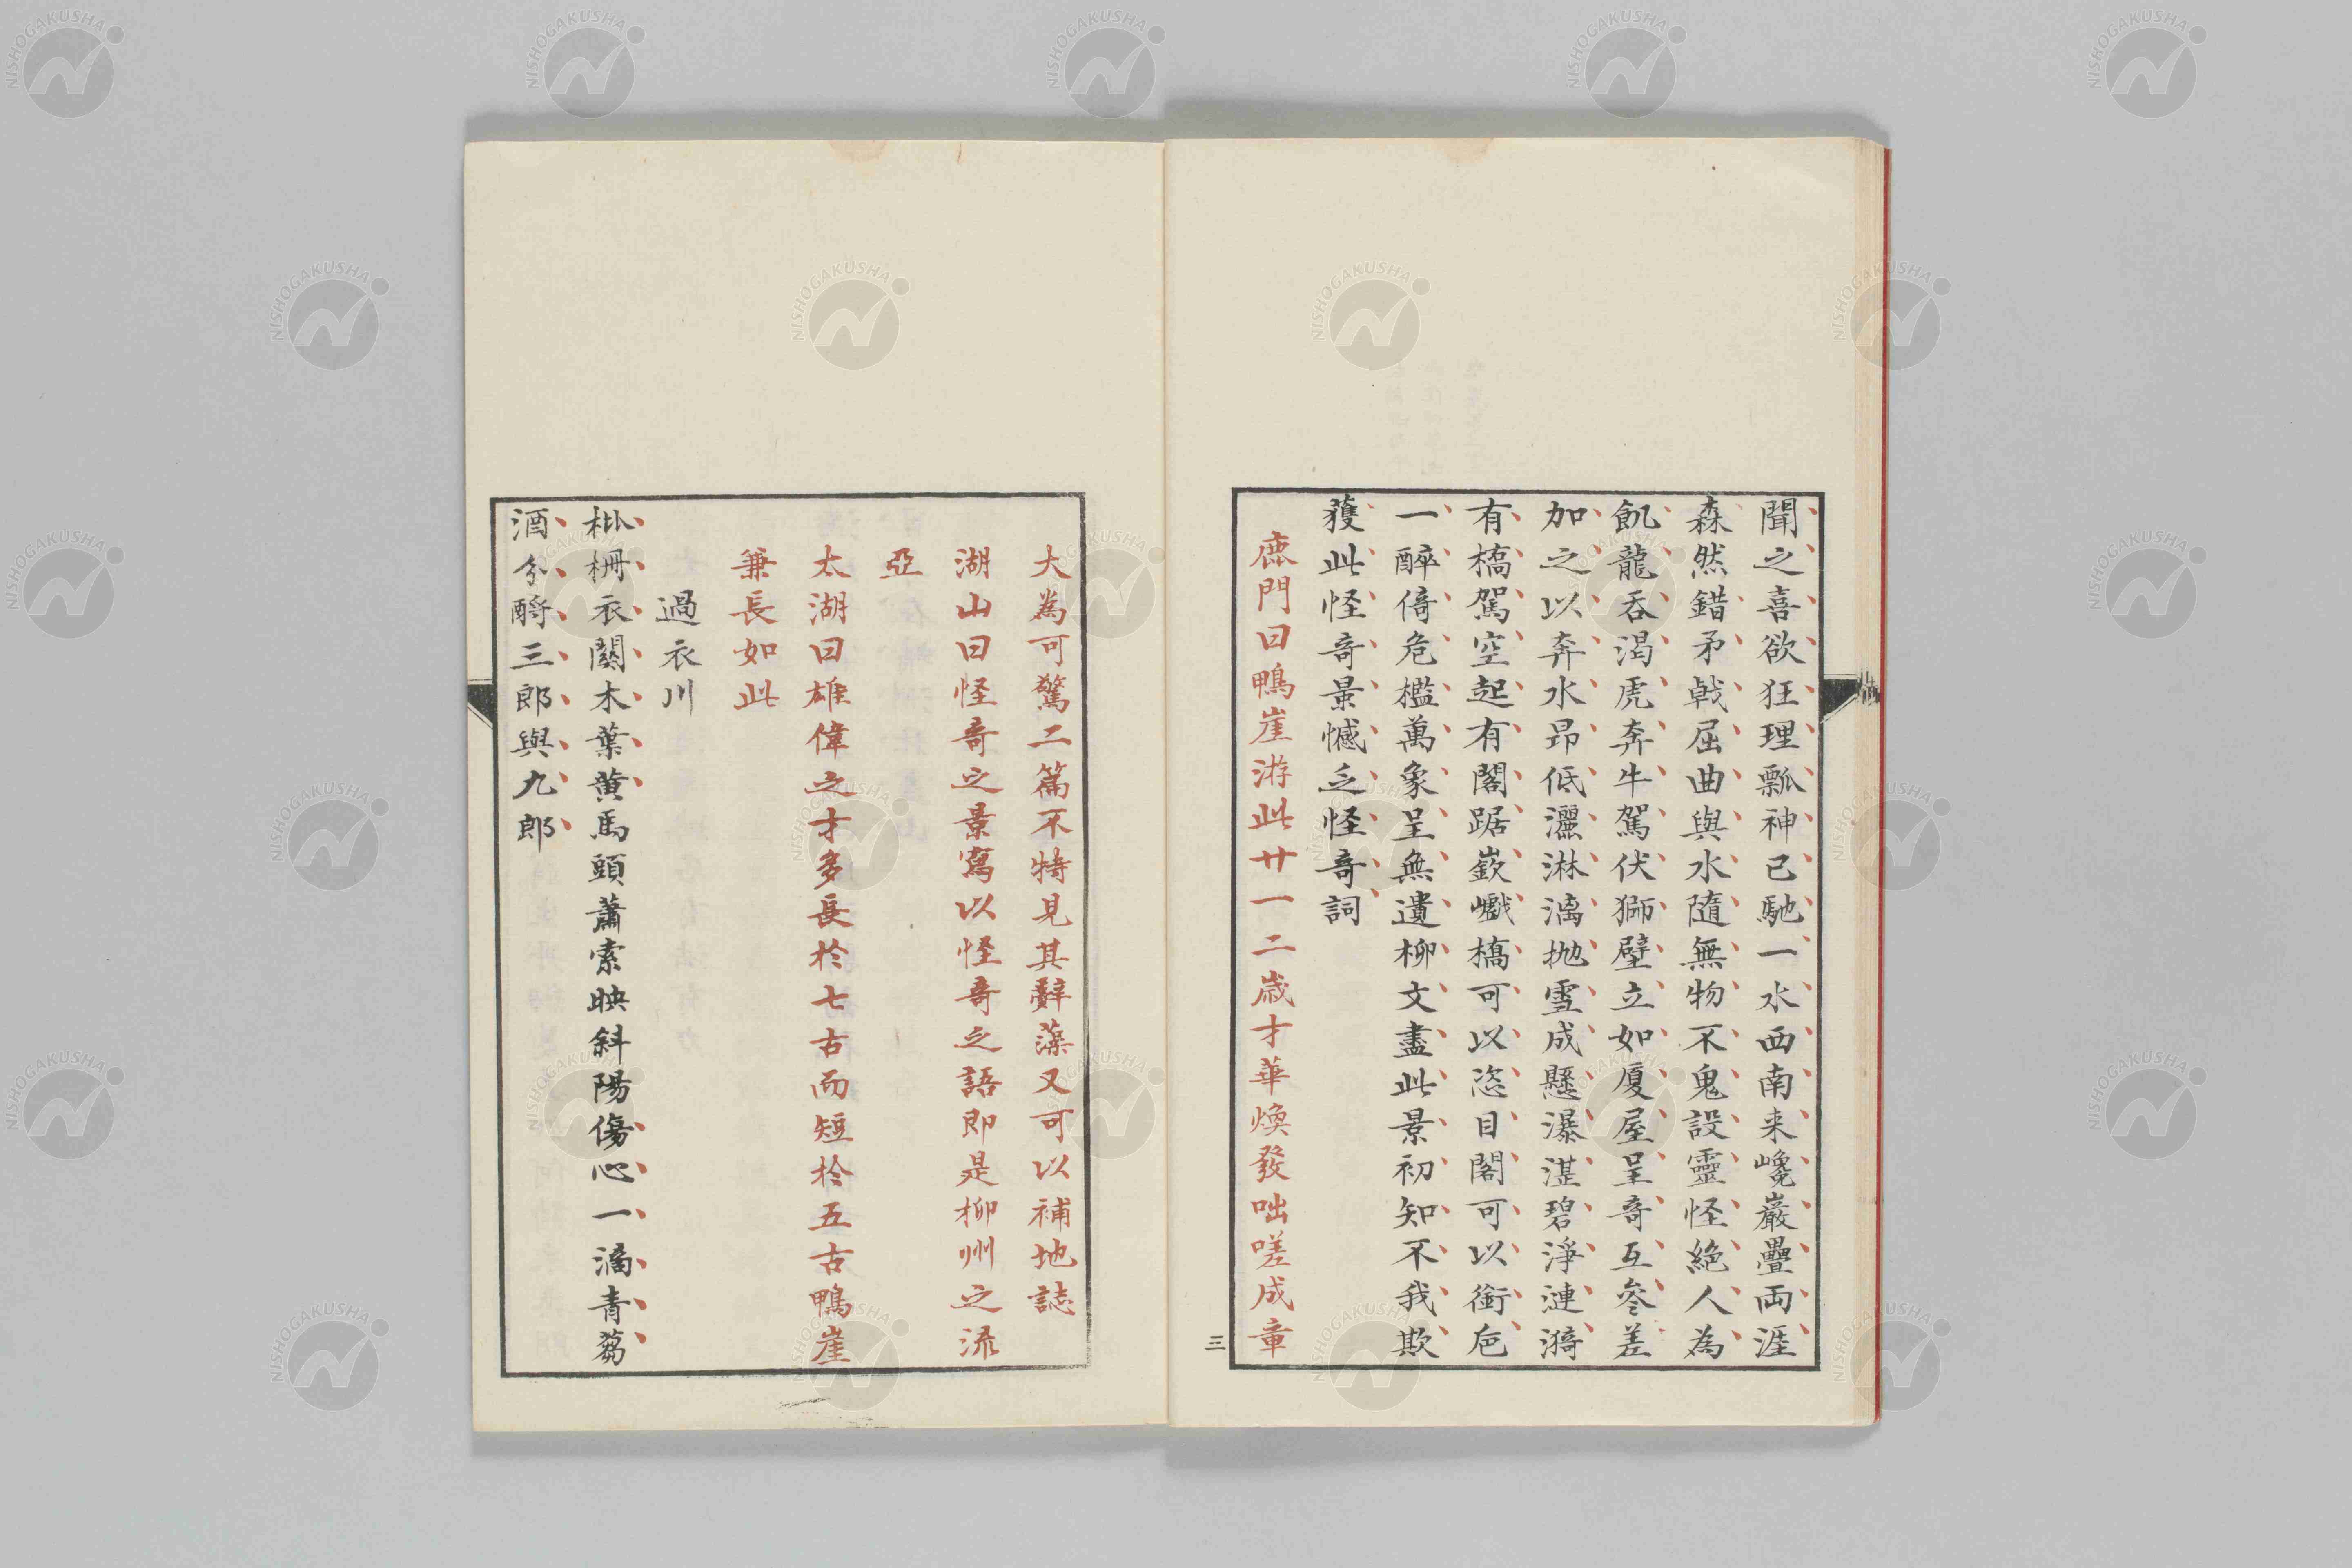 聞之喜欲狂理瓢神已馳一水西南来巉巖疊両涯
森然錯矛戟屈曲與水隨無物不鬼設靈怪絶人為
飢龍呑渇虎奔牛駕伏獅壁立如厦屋呈奇互參差
加之以奔水昻低灑淋漓抛雪成懸瀑湛碧淨漣漪
有橋駕空起有閣踞嶔巇橋可以恣目閣可以銜巵
一醉倚危檻萬象呈無遺柳文盡此景初知不我欺
獲此怪奇景憾乏怪奇詞
鹿門曰鴨崖游此廿一二歳才華煥發咄嗟成章
三
大為可驚二篇不特見其辭藻又可以補地誌
湖山曰怪奇之景寫以怪奇之語即是柳州之流
亞
太湖曰雄偉之才多長於七古而短於五古鴨崖
兼長如此
過衣川
枇柵衣關木葉黄馬頭蕭索映斜陽傷心一滴青蒭
酒分酹三郎與九郎
NISHOGAKUSHA